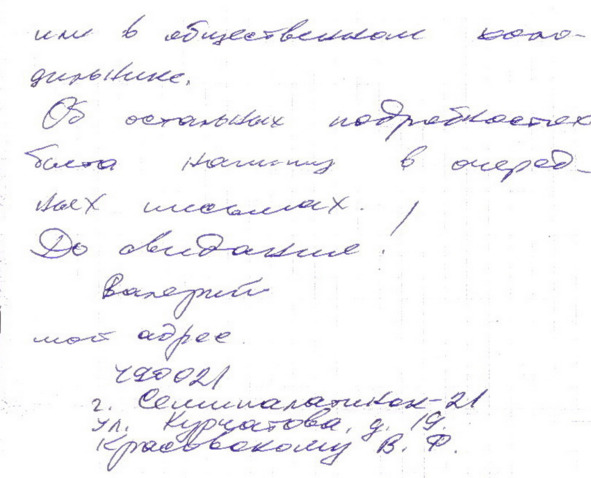 или в общественном холо-
дильнике.
Об остальных подробностях
быта напишу в очеред-
ных письмах.
До свидания!
Валерий
мой адрес
490021
г. Семипалатинск-21
ул. Курчатова, д. 19.
Красовскому В. Ф.